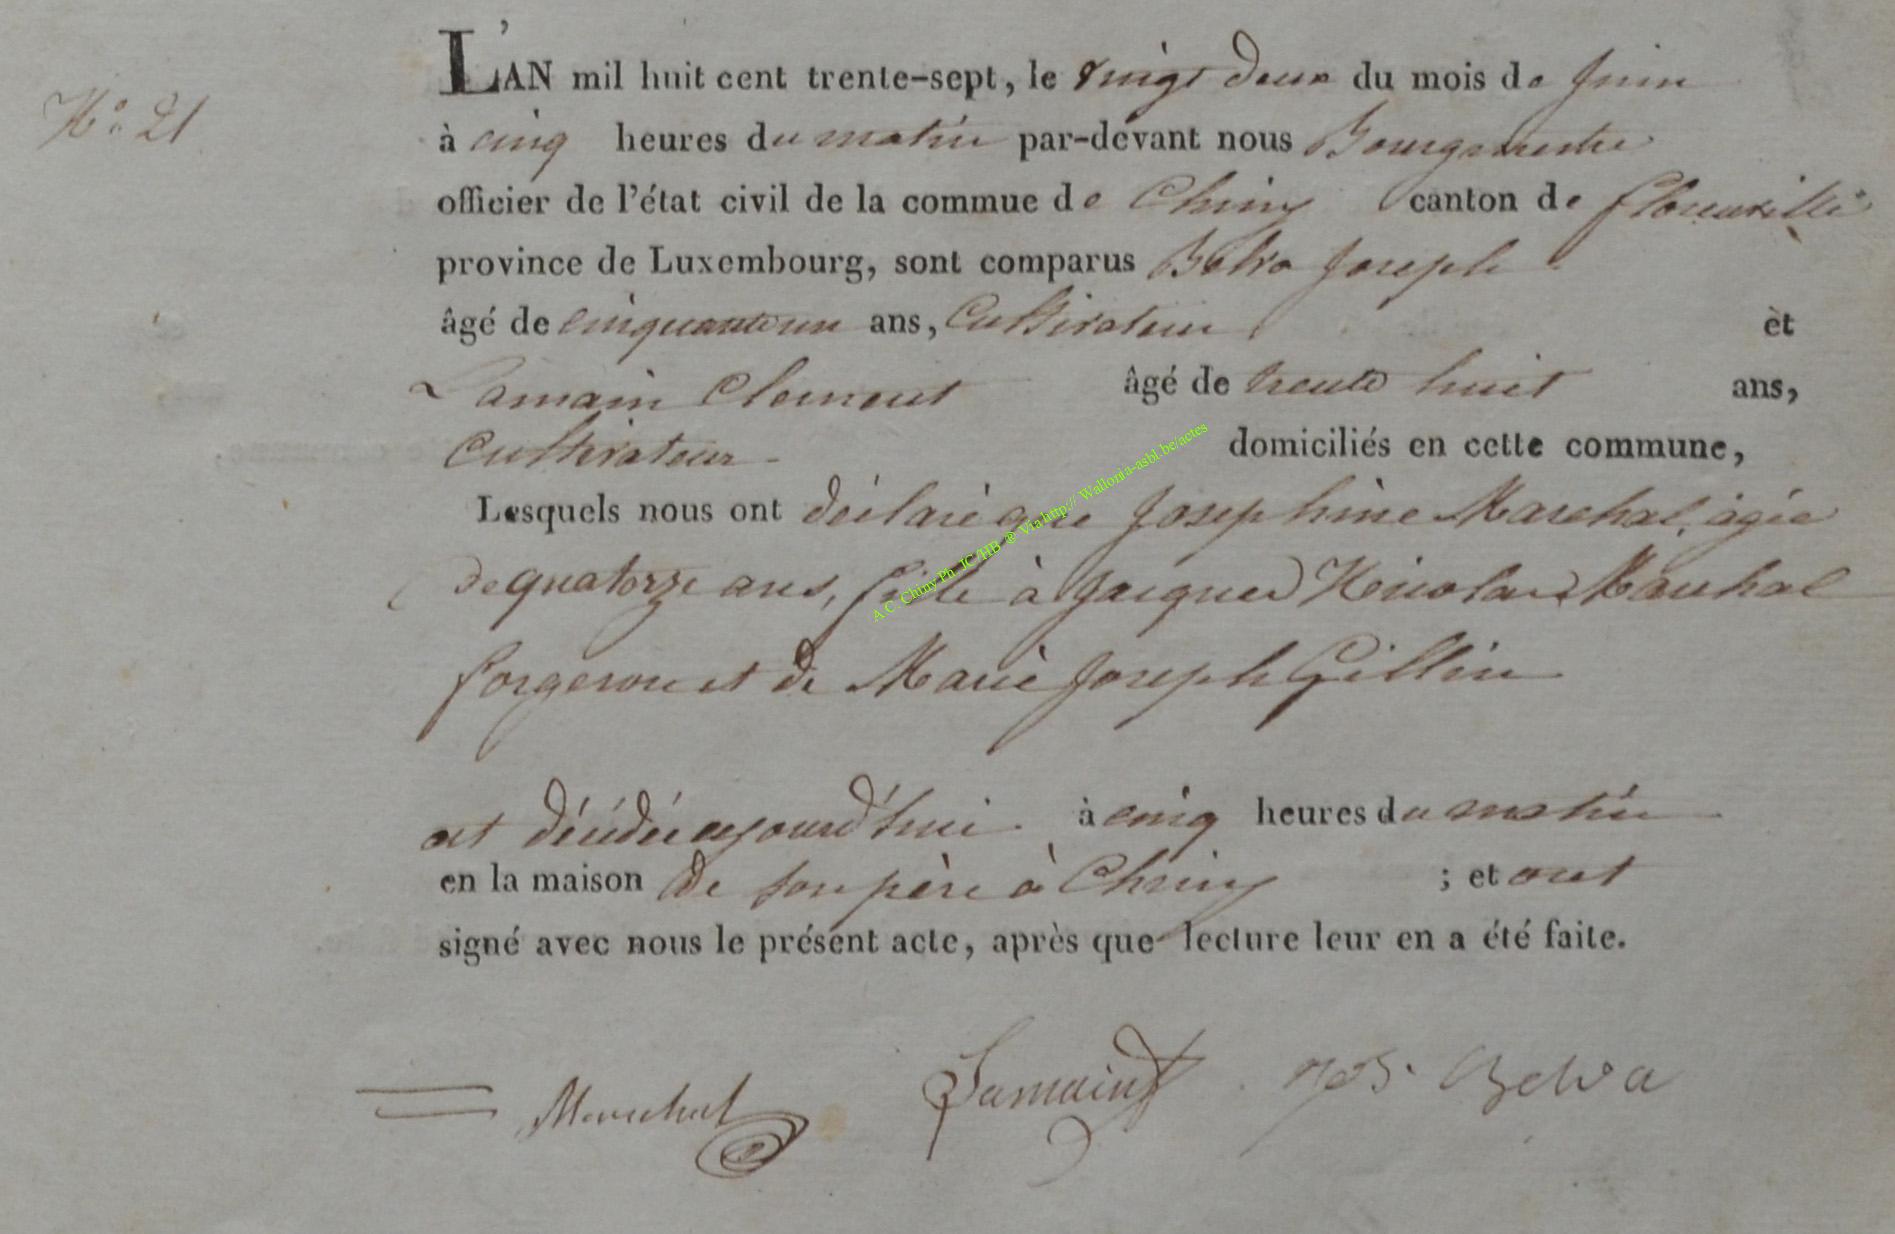 N.° 21
L'AN mil huit cent trente-sept, le vingt deux du mois de Juin
à cinq heures du matin par-devant nous Bourgmestre
officier de l'état civil de la commue de Chiny canton de florenville
province de Luxembourg, sont comparus Belva Joseph
âgé de cinquante un ans, Cultivateur èt
Lamain Clement âgé de trente huit ans,
Cultivateur - domiciliés en cette commune,
Lesquels nous ont déclaré que Josephine Marechal, agée
de quatorze ans, fille à Jacques Nicolas Marechal
forgeron et de Marie Joseph Gillin
est décédée aujourd'hui à cinq heures du matin
en la maison de son père à Chiny ; et ont
signé avec nous le présent acte, après que lecture leur en a été faite.
Marechal Lamain Jos. Belva
A.C. Chiny Ph. JC/HB ® Via http:// Wallonia-asbl.be/actes